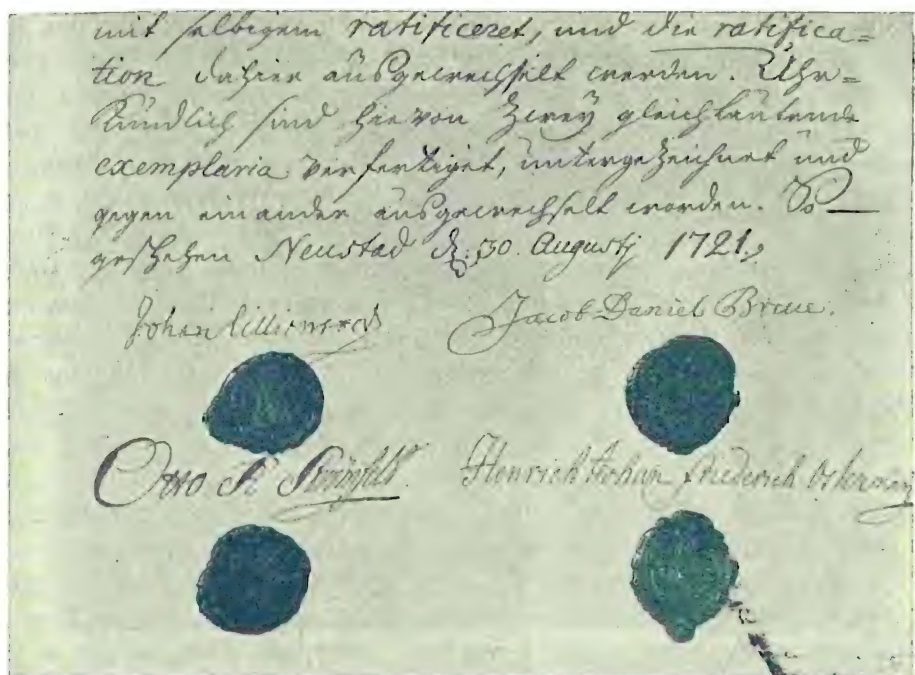 mit selbigem ratificeret, und die ratifica=
tion dahier ausgewechselt werden. Uhr=
kundlich sind hievon zwey gleichlautende
exemplaria verfertiget, untergezeichnet und
gegen einander ausgewechselt worden. So
geschehen Neustad d. 30. Augustj 1721.
Johan Lillienstedt
Jacob Daniel Bruce.
Otto R Strömfelt
Henrich Johan friederich Osterman